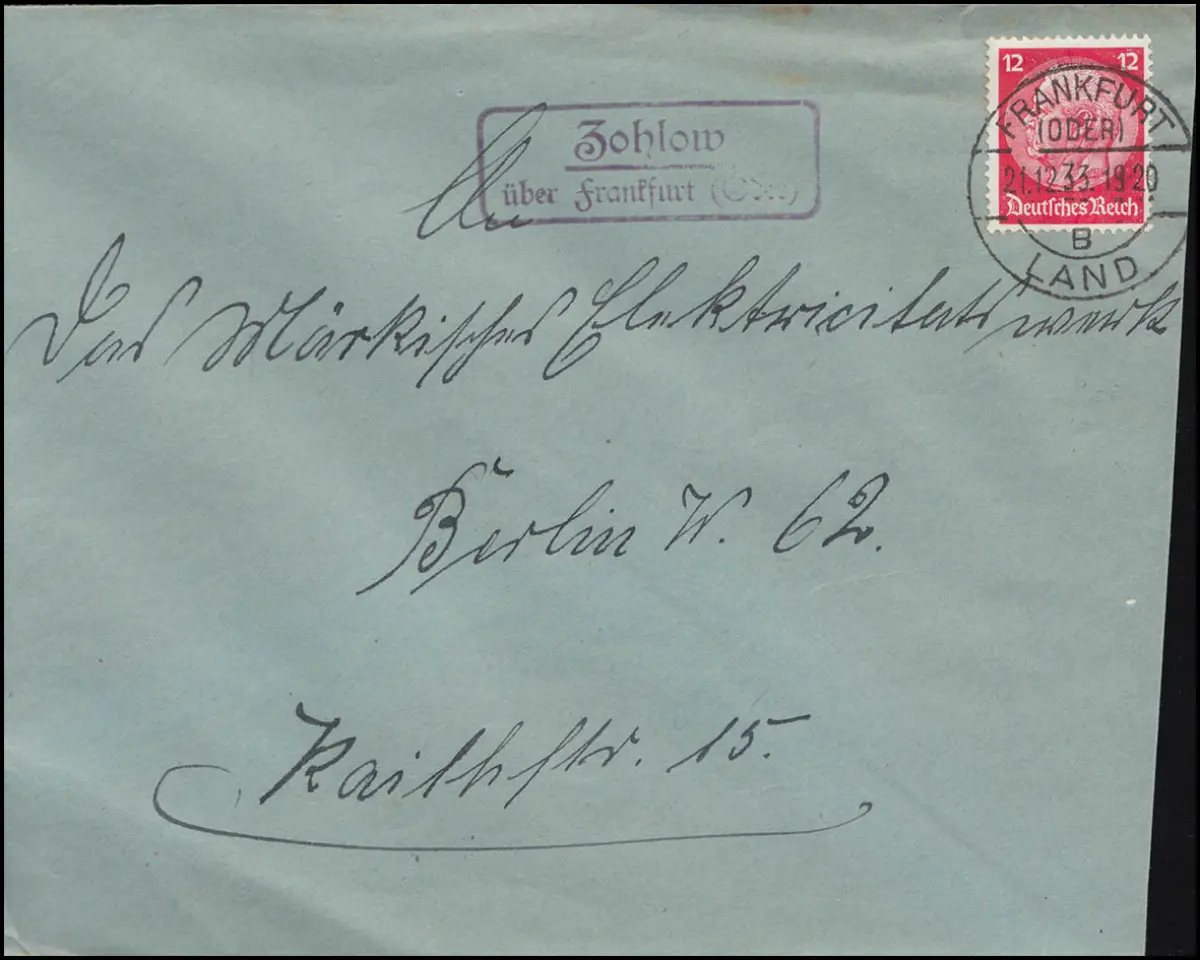 12 12
Deutsches Reich
FRANKFURT
(ODER)
21.12.33.19-20
B
LAND
Zohlow
über Frankfurt (Oder)
An
Das Märkisches Elektricitats werk
Berlin W. 62.
15.